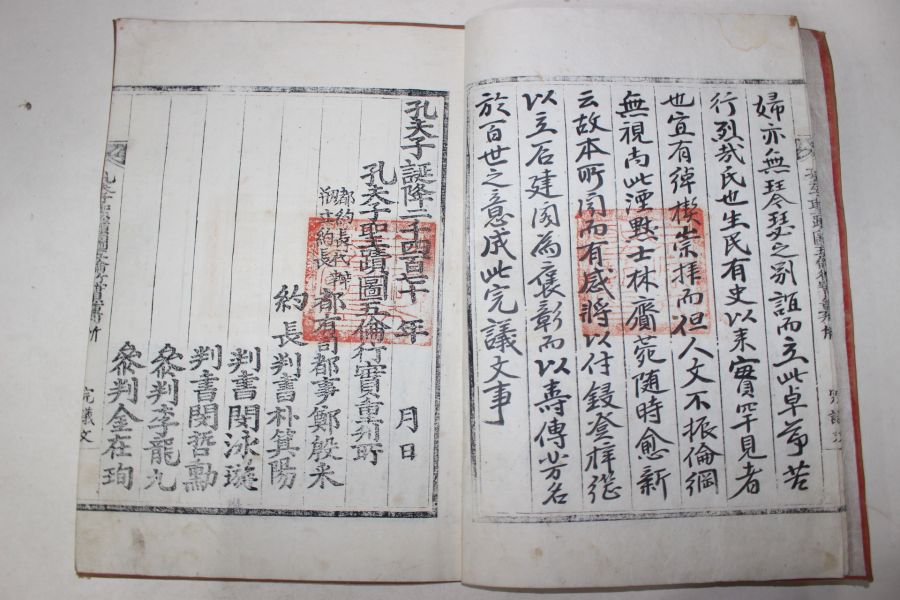 婦亦無琴瑟之別誼而立此卓節苦
行烈哉氏也生民有史以來實罕見者
也宜有綽楔崇拜而但人文不振倫綱
無視尚此湮黙士林齎菀隨時愈新
云故本所聞而有感將以付鋟登梓從
以立石建閣為褒彰而以壽傳芳名
於百世之意成此完議文事
孔夫子誕降二千四百七十 年 月 日
孔夫子聖蹟圖五倫行實重刊所
都約長代辦
都有司都事鄭殷采
約長判書朴箕陽
判書閔泳璇
判書閔哲勳
參判李龍九
參判金在珣
完議文